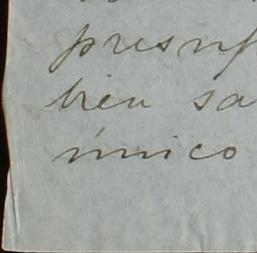 presup
bien sa
único